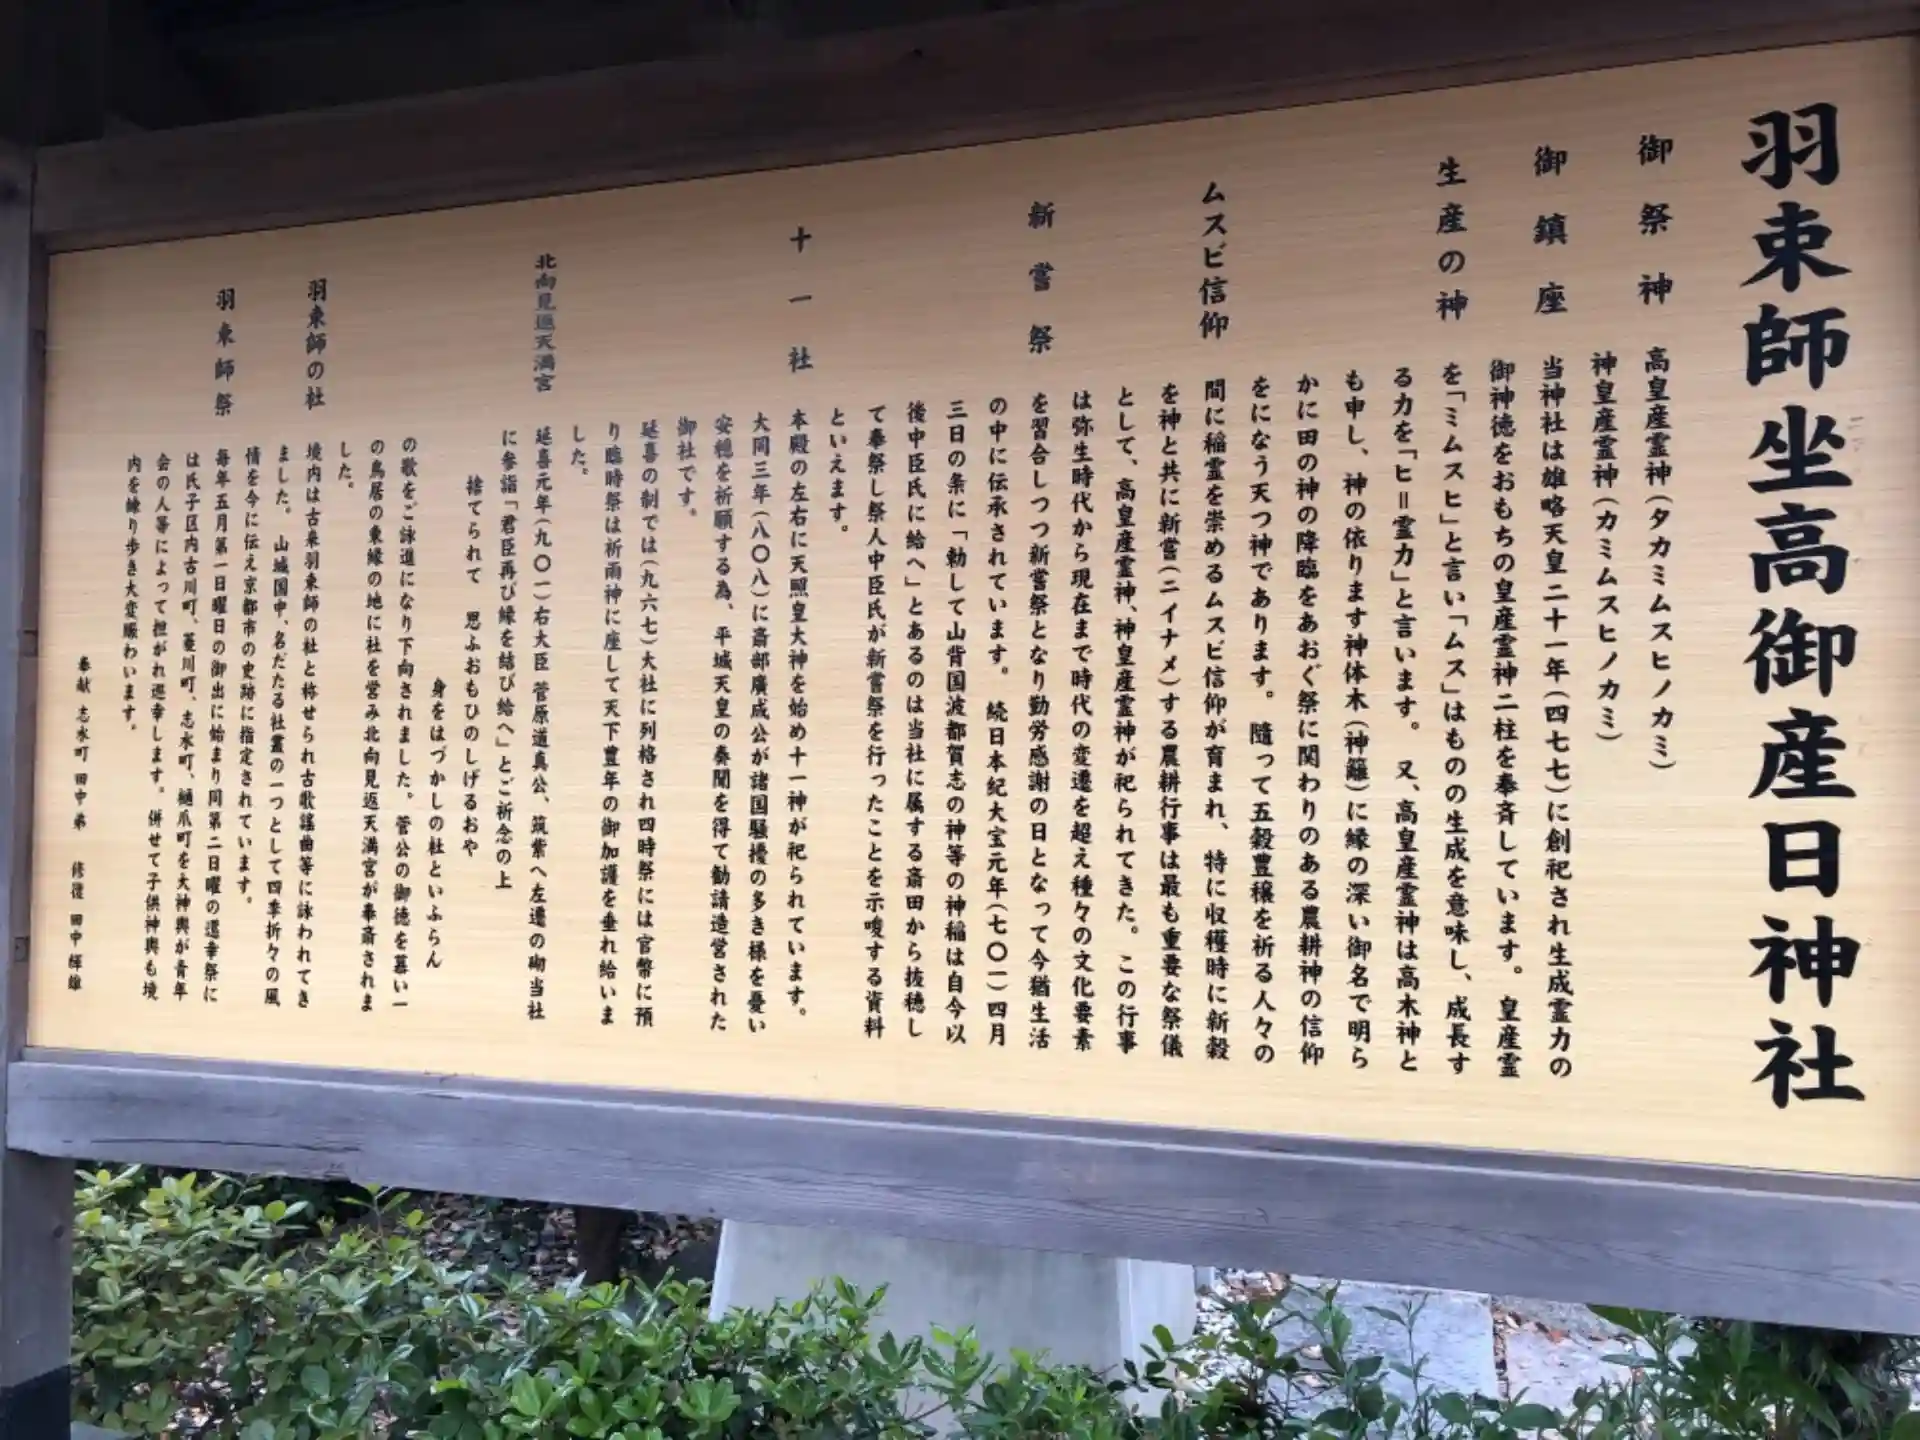 羽束師坐高御産日神社
御祭神
高皇産霊神(タカミムスヒノカミ)
神皇産霊神(カミムスヒノカミ)
御鎮座
当神社は雄略天皇二十一年(四七七)に創祀され生成霊力の
御神徳をおもちの皇産霊神二柱を奉斉しています。皇産霊
生産の神
を「ミムスヒ」と言い「ムス」はものの生成を意味し、成長す
る力を「ヒ=霊力」と言います。又、高皇産霊神は高木神と
も申し、神の依ります神体木(神籬)に縁の深い御名で明ら
かに田の神の降臨をあおぐ祭に関わりのある農耕神の信仰
をになう天つ神であります。随って五穀豊穣を祈る人々の
ムスビ信仰
間に稲霊を崇めるムスビ信仰が育まれ、特に収穫時に新穀
を神と共に新嘗(ニイナメ)する農耕行事は最も重要な祭儀
として、高皇産霊神、神皇産霊神が祀られてきた。この行事
は弥生時代から現在まで時代の変遷を超え種々の文化要素
新嘗祭
を習合しつつ新嘗祭となり勤労感謝の日となって今猶生活
の中に伝承されています。続日本紀大宝元年(七〇一)四月
三日の条に「勅して山背国波都賀志の神等の神稲は自今以
後中臣氏に給へ」とあるのは当社に属する斎田から抜穂し
て奉祭し祭人中臣氏が新嘗祭を行ったことを示唆する資料
といえます。
十一社
本殿の左右に天照皇大神を始め十一神が祀られています。
大同三年(八〇八)に斎部廣成公が諸国騒擾の多き様を憂い
安穏を祈願する為、平城天皇の奏聞を得て勧請造営された
御社です。
延喜の制では(九六七)大社に列格され四時祭には官幣に預
り臨時祭は祈雨神に座して天下豊年の御加護を垂れ給いま
した。
北向見返天満宮
延喜元年(九〇一)右大臣 菅原道真公、筑紫へ左遷の砌当社
に参詣「君臣再び縁を結び給へ」とご祈念の上
捨てられて 思ふおもひのしげるおや
身をはづかしの社といふらん
の歌をご詠進になり下向されました。菅公の御徳を慕い一
の鳥居の東縁の地に社を営み北向見返天満宮が奉斎されま
した。
羽束師の社
境内は古来羽束師の社と称せられ古歌謡曲等に詠われてき
ました。山城国中、名だたる社叢の一つとして四季折々の風
情を今に伝え京都市の史跡に指定されています。
羽束師祭
毎年五月第一日曜日の御出に始まり同第二日曜の還幸祭に
は氏子区内古川町、菱川町、志水町、樋爪町を大神輿が青年
会の人等によって担がれ巡幸します。併せて子供神輿も境
内を練り歩き大変賑わいます。
奉献 志水町 田中 修復 田中